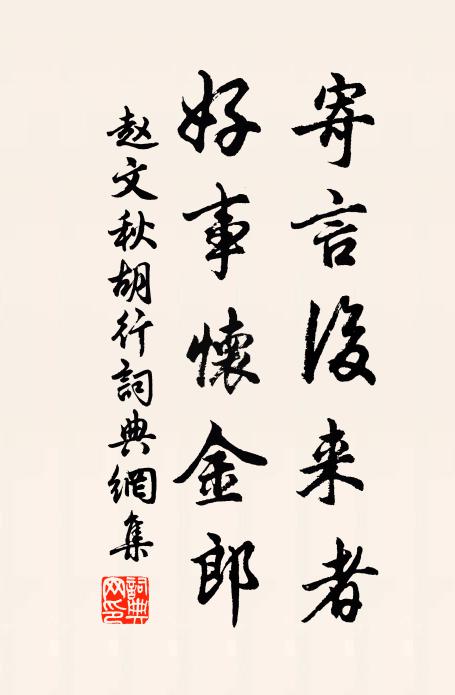 寄言後来者
好事懷金郎
赵文秋胡行詞典網集
詞典網印